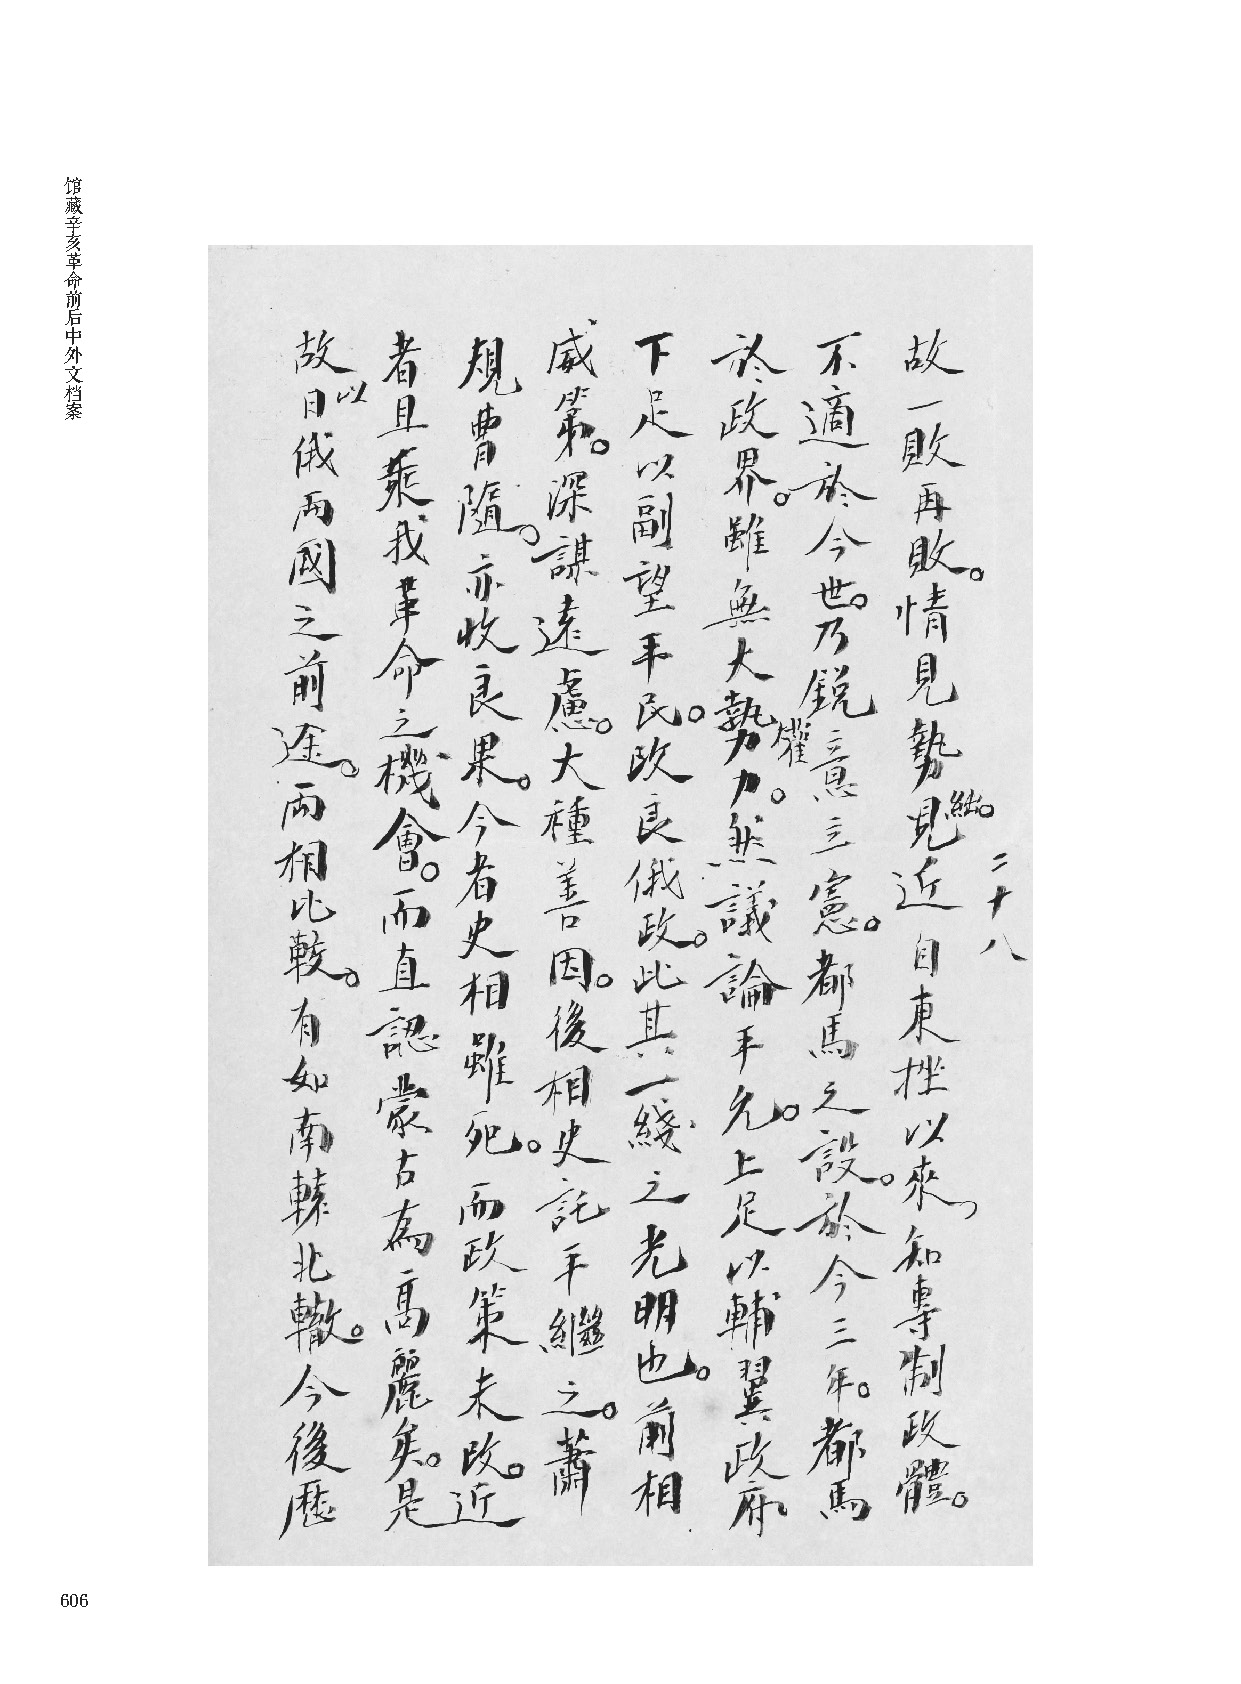 馆藏辛亥革命前后中外文档案
二十八
故一敗再敗。情見勢見絀。近自東挫以來，知專制政體。
不適於今世。乃銳意立憲。都馬之設。於今三年。都馬
於政界。雖無大勢權力。然議論平允。上足以輔翼政府
下足以副望平民。改良俄政。此其一綫之光明也。前相
威第。深謀遠慮。大種善因。後相史託平繼之。蕭
規曹隨。亦收良果。今者史相雖死。而政策未改。近
者且乘我革命之機會。而直認蒙古為高麗矣。是
故以日俄兩國之前途。兩相比較。有如南轅北轍。今後歷
606